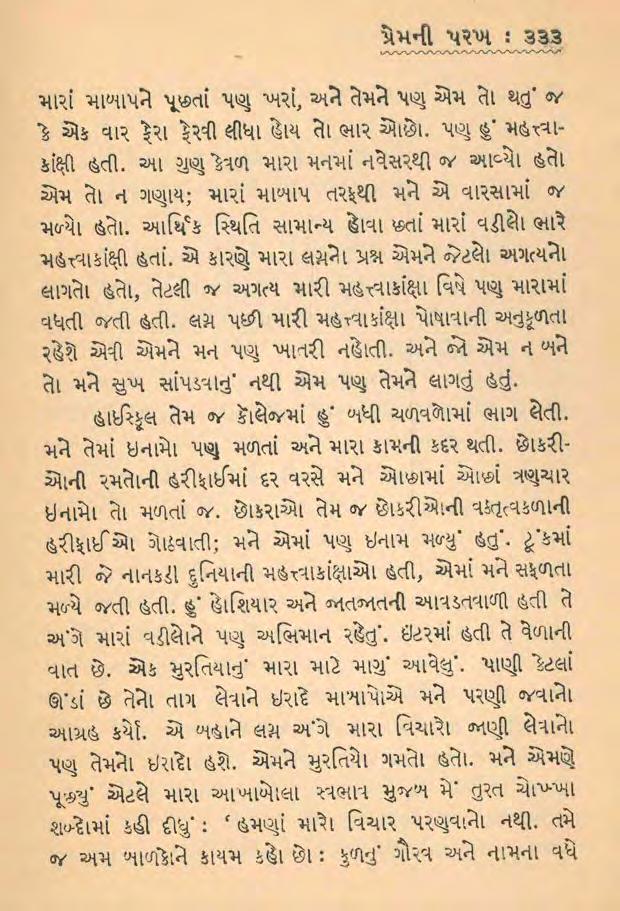 પ્રેમની પરખ : ૩૩૩
મારાં માબાપને પૂછતાં પણ ખરાં, અને તેમને પણ એમ તો થતું જ
કે એક વાર ફેરા ફેરવી લીધા હોય તો ભાર ઓછો. પણ હું મહત્ત્વા-
કાંક્ષી હતી. આ ગુણ કેવળ મારા મનમાં નવેસરથી જ આવ્યો હતો
એમ તો ન ગણાય; મારાં માબાપ તરફથી મને એ વારસામાં જ
મળ્યો હતો. આર્થિક સ્થિતિ સામાન્ય હોવા છતાં મારાં વડીલો ભારે
મહત્ત્વાકાંક્ષી હતાં. એ કારણે મારા લગ્નનો પ્રશ્ન એમને જેટલો અગત્યનો
લાગતો હતો, તેટલી જ અગત્ય મારી મહત્ત્વાકાંક્ષા વિષે પણ મારામાં
વધતી જતી હતી. લગ્ન પછી મારી મહત્ત્વાકાંક્ષા પોષાવાની અનુકૂળતા
રહેશે એવી એમને મન પણ ખાતરી નહોતી. અને જો એમ ન બને
તો મને સુખ સાંપડવાનું નથી એમ પણ તેમને લાગતું હતું.
હાઈસ્કૂલ તેમ જ કૉલેજમાં હું બધી ચળવળોમાં ભાગ લેતી.
મને તેમાં ઇનામો પણ મળતાં અને મારા કામની કદર થતી. છોકરી-
ઓની રમતોની હરીફાઈમાં દર વરસે મને ઓછામાં ઓછાં ત્રણચાર
ઇનામો તો મળતાં જ. છોકરાઓ તેમ જ છોકરીઓની વક્તૃત્વકળાની
હરીફાઈઓ ગોઠવાતી; મને એમાં પણ ઇનામ મળ્યું હતું. ટૂંકમાં
મારી જે નાનકડી દુનિયાની મહત્ત્વાકાંક્ષાઓ હતી, એમાં મને સફળતા
મળ્યે જતી હતી. હું હોશિયાર અને જાતજાતની આવડતવાળી હતી તે
અંગે મારાં વડીલોને પણ અભિમાન રહેતું. ઇંટરમાં હતી તે વેળાની
વાત છે. એક મુરતિયાનું મારા માટે માગું આવેલું. પાણી કેટલાં
ઊંડાં છે તેનો તાગ લેવાને ઇરાદે માબાપોએ મને પરણી જવાનો
આગ્રહ કર્યો. એ બહાને લગ્ન અંગે મારા વિચારો જાણી લેવાનો
પણ તેમનો ઇરાદો હશે. એમને મુરતિયો ગમતો હતો. મને એમણે
પૂછ્યું એટલે મારા આખાબોલા સ્વભાવ મુજબ મેં તુરત ચોખ્ખા
શબ્દોમાં કહી દીધું : ‘હમણાં મારો વિચાર પરણવાનો નથી. તમે
જ અમ બાળકોને કાયમ કહો છો : કુળનું ગૌરવ અને નામના વધે